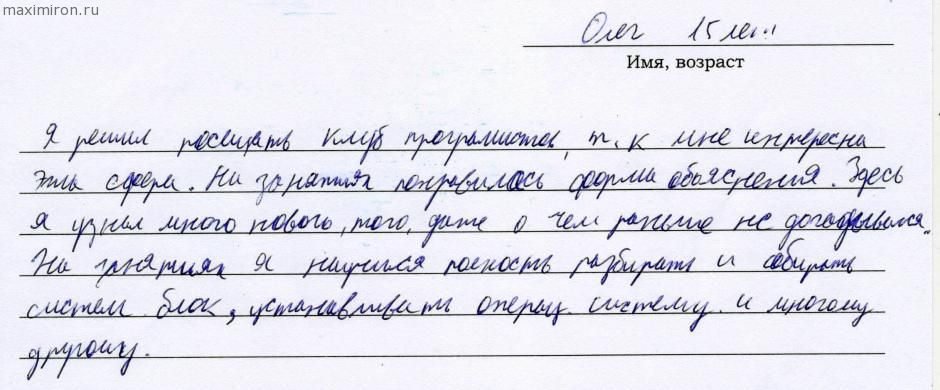 maximiron.ru
Олег 15 лет
Имя, возраст
Я решил посещать клуб програмистов, т. к мне интересна
эта сфера. На занятиях понравилась форма объяснения. Здесь
я узнал много нового, того, даже о чем раньше не догадывался.
На занятиях я научился полность разбирать и собирать
систем блок, устанавливать операц. систему. и многому
другому.